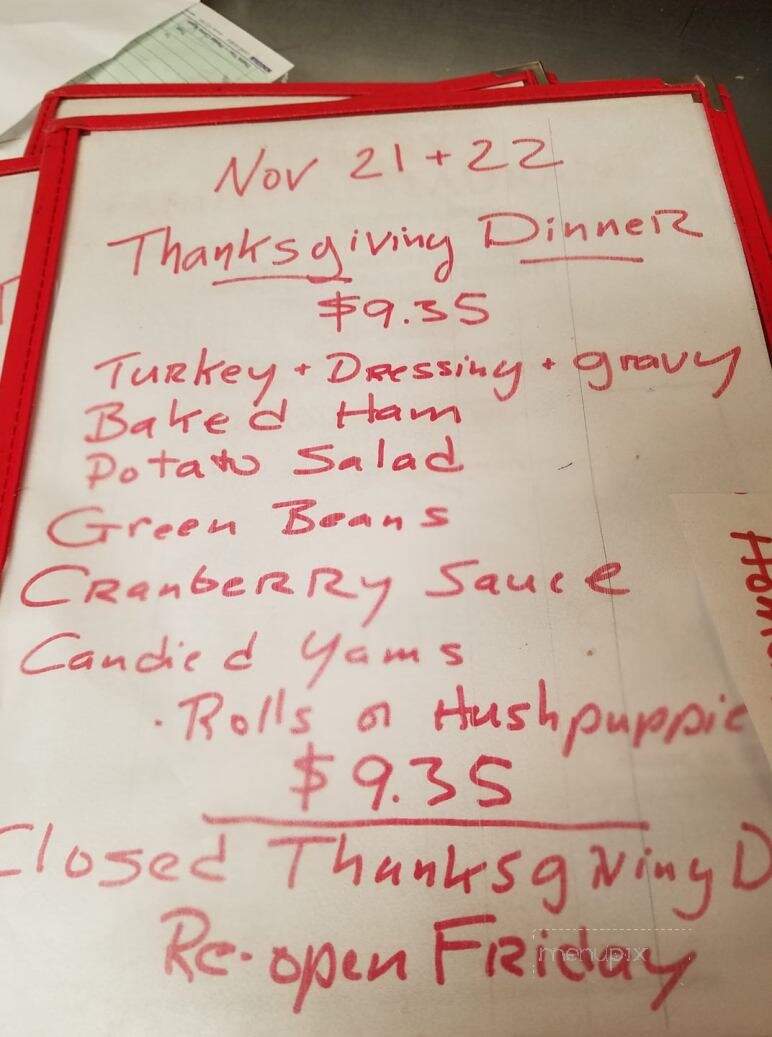 Nov 21 + 22
Thanksgiving Dinner
$9.35
Turkey + Dressing + gravy
Baked Ham
Potato Salad
Green Beans
Cranberry Sauce
Candied Yams
. Rolls or Hushpuppie
$9.35
Closed Thanksgiving D
Re-open Friday
menupix